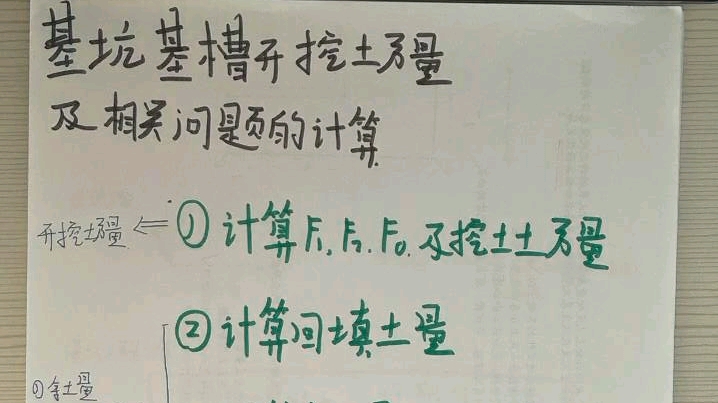 基坑基槽开挖土方量
及相关问题的计算
开挖土方量 ⇐ ① 计算F₁, F₂, F₀, 及挖土土方量
② 计算回填土量
①余土量